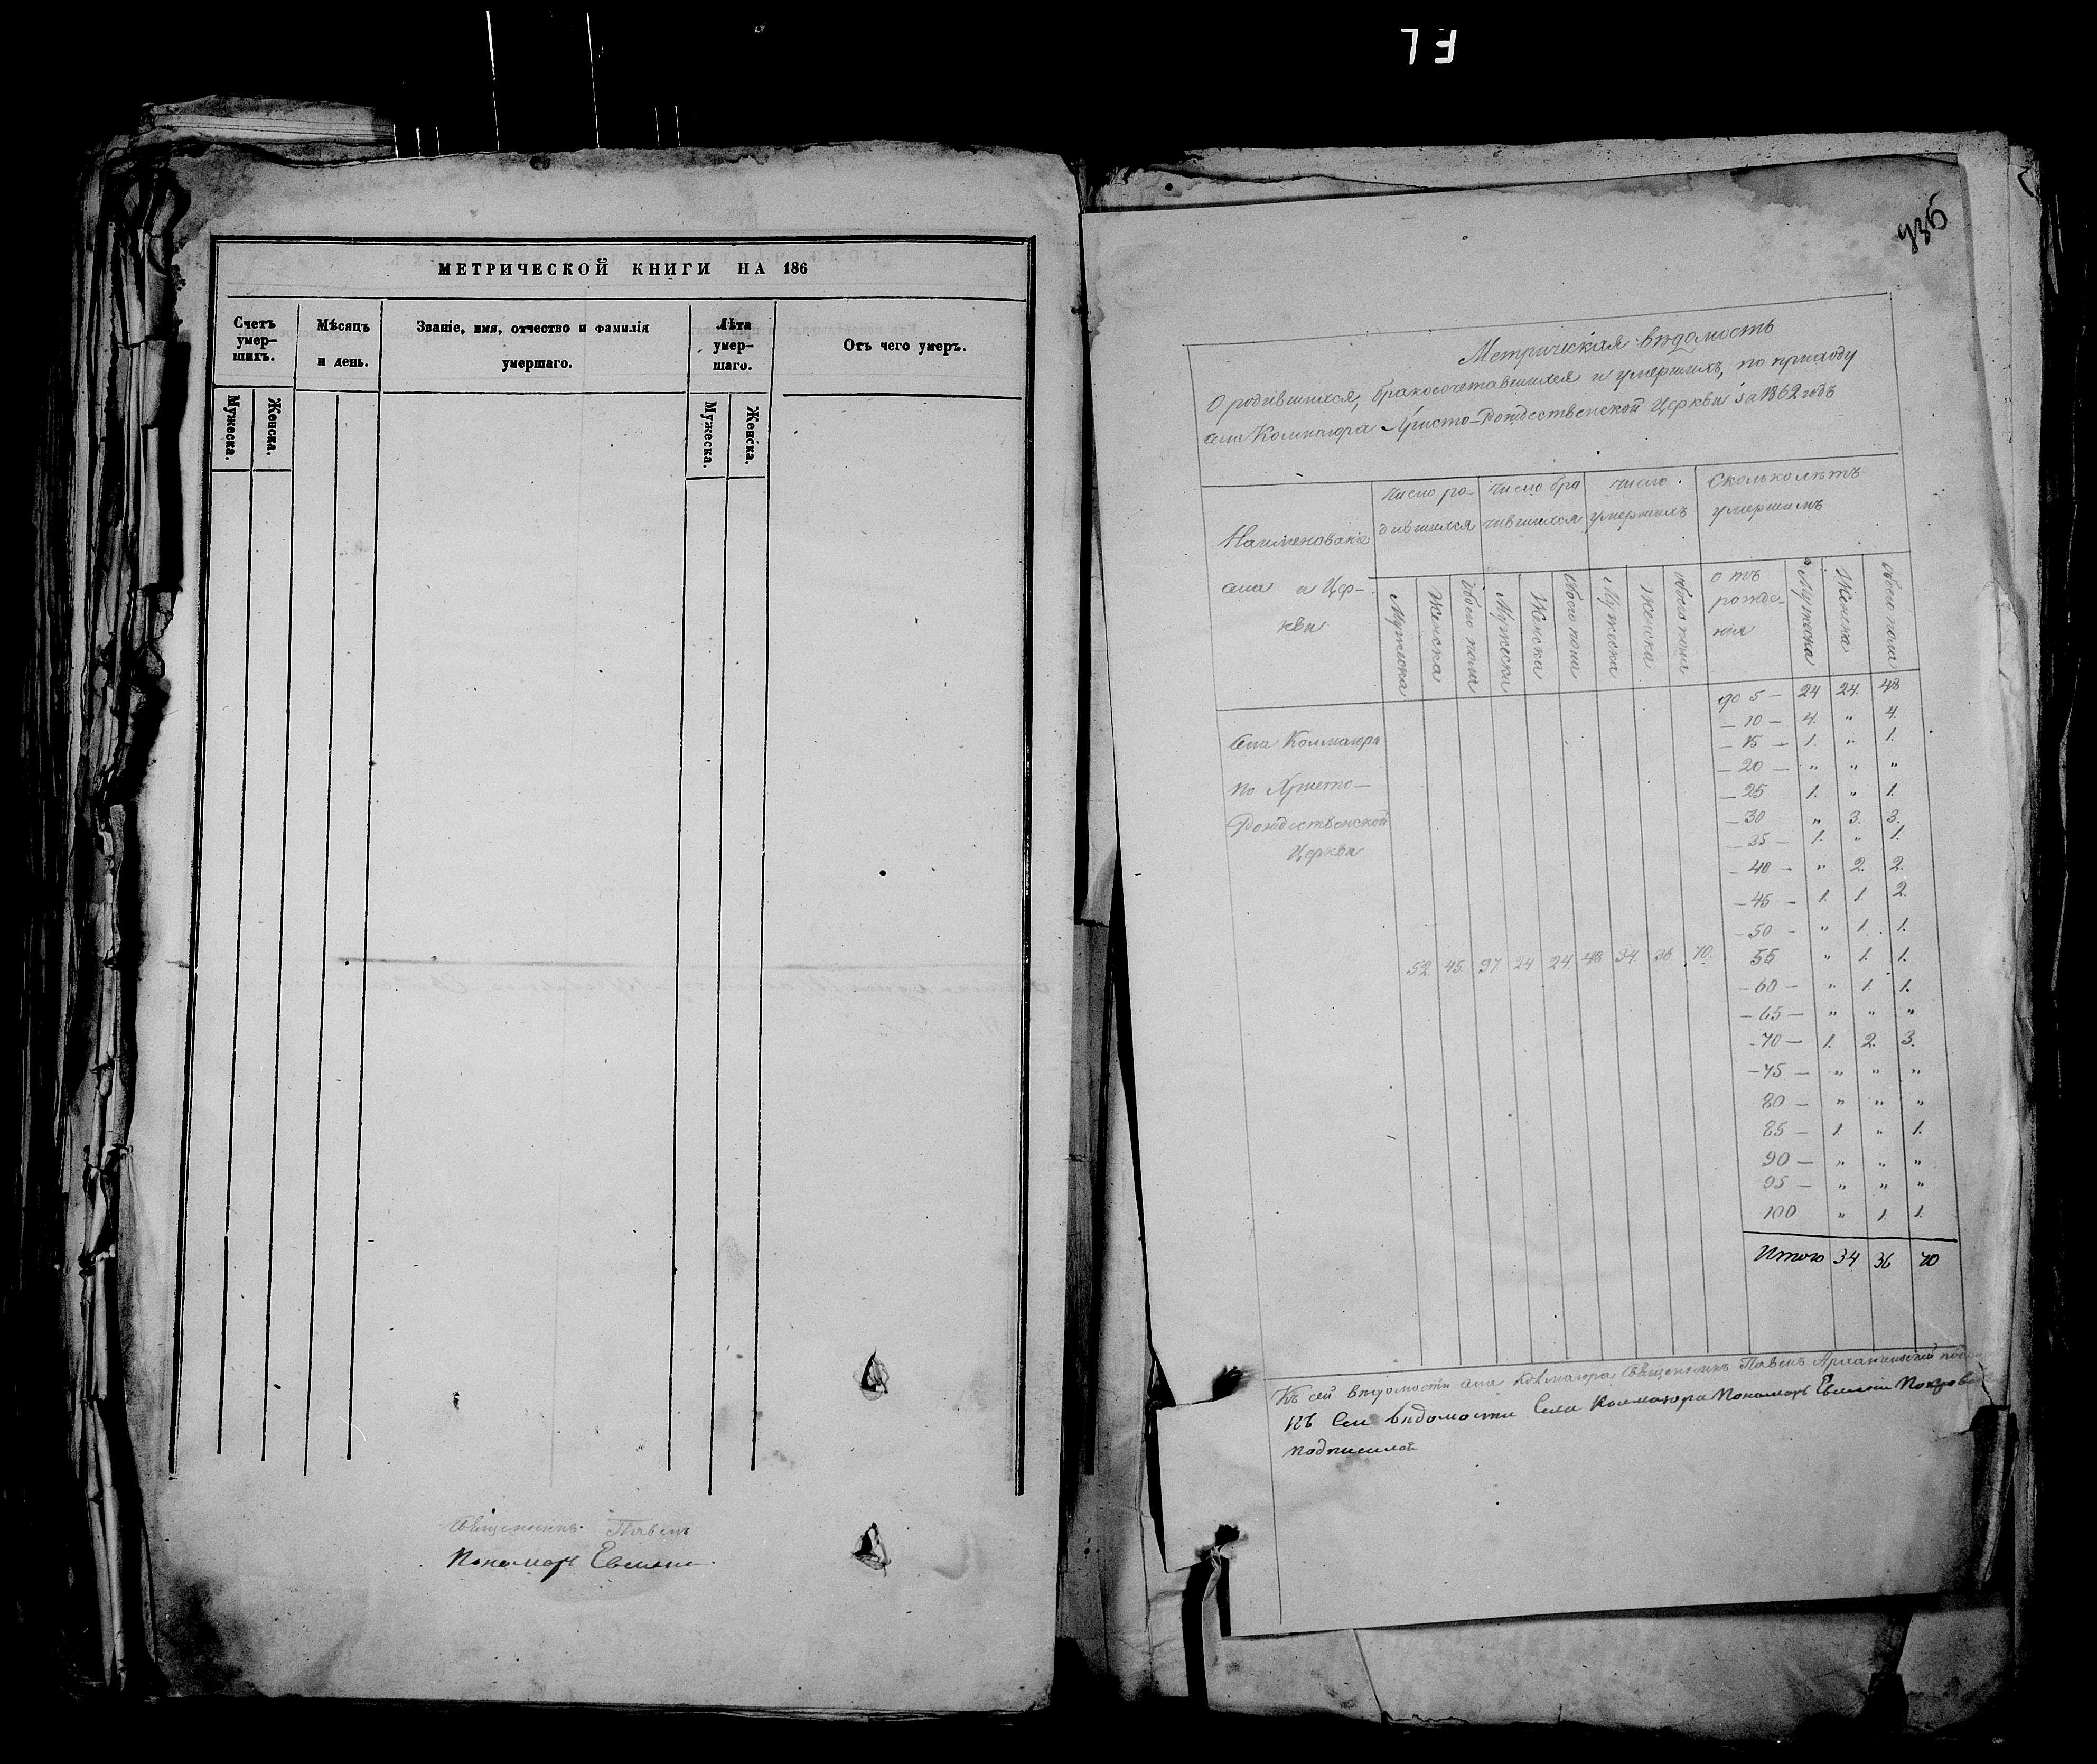 МЕТРИЧЕСКОЙ КНИГИ НА 186
Счетъ умер-шихъ.
Мѣсяцъ и день.
Званіе, имя, отчество и фамилія умершаго.
Лѣта умер-шаго.
Отъ чего умеръ.
Мужеска. Женска. Мужеска. Женска.
Священникъ Павелъ
Пономарь
Метрическая вѣдомость
О родившихся, бракосочетавшихся и умершихъ, по приходу
села Колмаюра Христо-Рождественской Церкви за 1862 годъ
Наименованіе села и Цер-кви
число ро-дившихся
число бра-чившихся
число умершихъ
Сколько лѣтъ умершимъ
Мужеска Женска Обоего пола Мужеска Женска Обоего пола Мужеска Женска Обоего пола
отъ рожде-нія
Мужеска Женска Обоего пола
Села Колмаюра
по Христо-
Рождественской
Церкви
52. 45. 97 24 24. 48 34. 36 70.
до 5 — 24 24. 48
— 10 — 4. " 4.
— 15 — 1. " 1.
— 20 — " " "
— 25 1. " 1.
— 30 " 3. 3.
— 35 — 1. " 1.
— 40 — " 2. 2.
— 45 — 1. 1. 2.
— 50 — " 1. 1.
55 " 1. 1.
— 60 — " 1. 1.
— 65 — " " "
— 70 — 1. 2. 3.
— 75 — " " "
80 — " " "
85 — 1. " 1.
90 — " " "
95 — " " "
100 " 1. 1.
Итого 34 36 70
Къ сей вѣдомости села Колмаюра Священникъ Павелъ Архангельскій
Къ сей вѣдомости села Колмаюра Пономарь